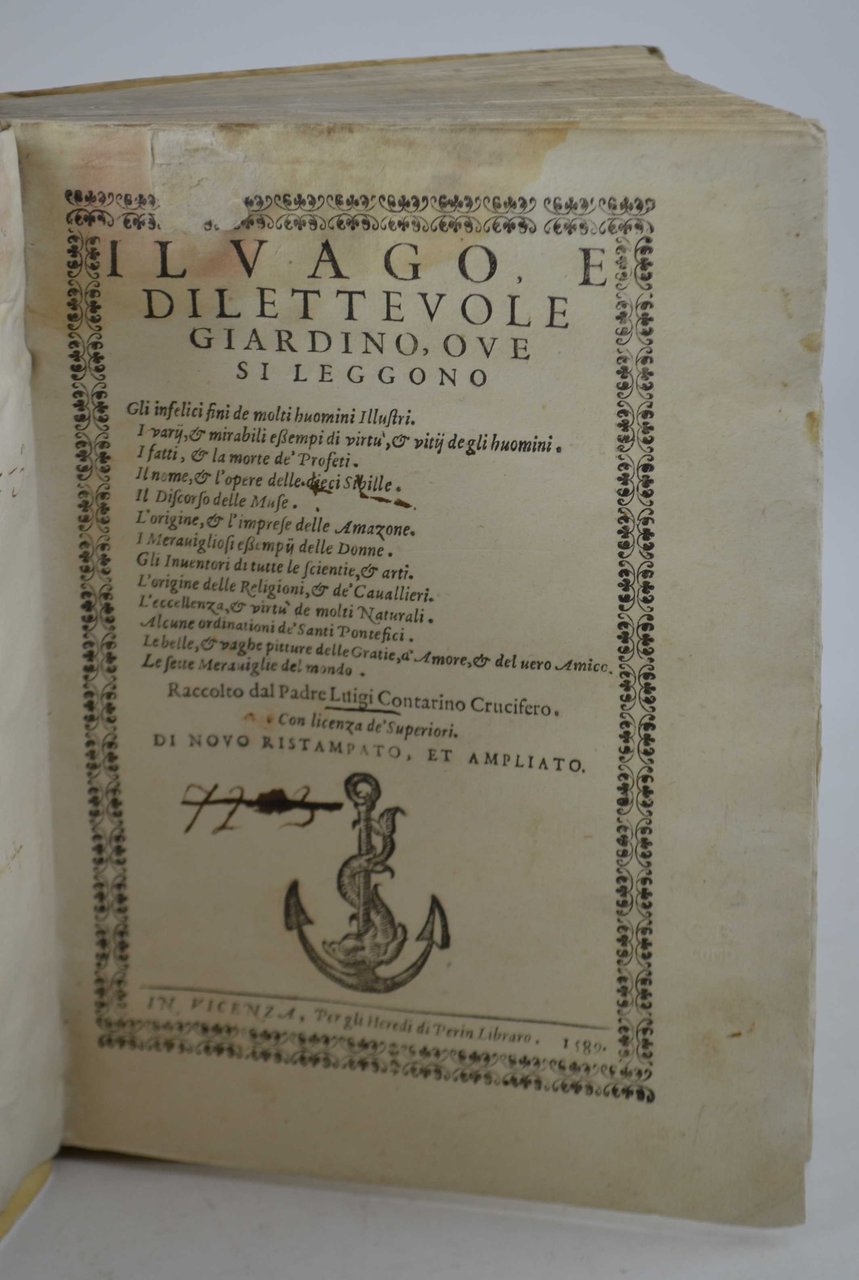 IL VAGO, E
DILETTEVOLE
GIARDINO, OVE
SI LEGGONO
Gli infelici fini de molti huomini Illuſtri.
I varij, & mirabili eßempi di virtù, & vitij de gli huomini.
I fatti, & la morte de' Profeti.
Il nome, & l'opere delle dieci Sibille.
Il Diſcorſo delle Muſe.
L'origine, & l'impreſe delle Amazone.
I Merauiglioſi eßempij delle Donne.
Gli Inuentori di tutte le ſcientie, & arti.
L'origine delle Religioni, & de' Cauallieri.
L'eccellenza, & virtù de molti Naturali.
Alcune ordinationi de' Santi Pontefici.
Le belle, & vaghe pitture delle Gratie, d'Amore, & del uero Amico.
Le ſette Merauiglie del mondo.
Raccolto dal Padre Luigi Contarino Crucifero.
Con licenza de' Superiori.
DI NOVO RISTAMPATO, ET AMPLIATO.
IN VICENZA, Per gli Heredi di Perin Libraro. 1589.